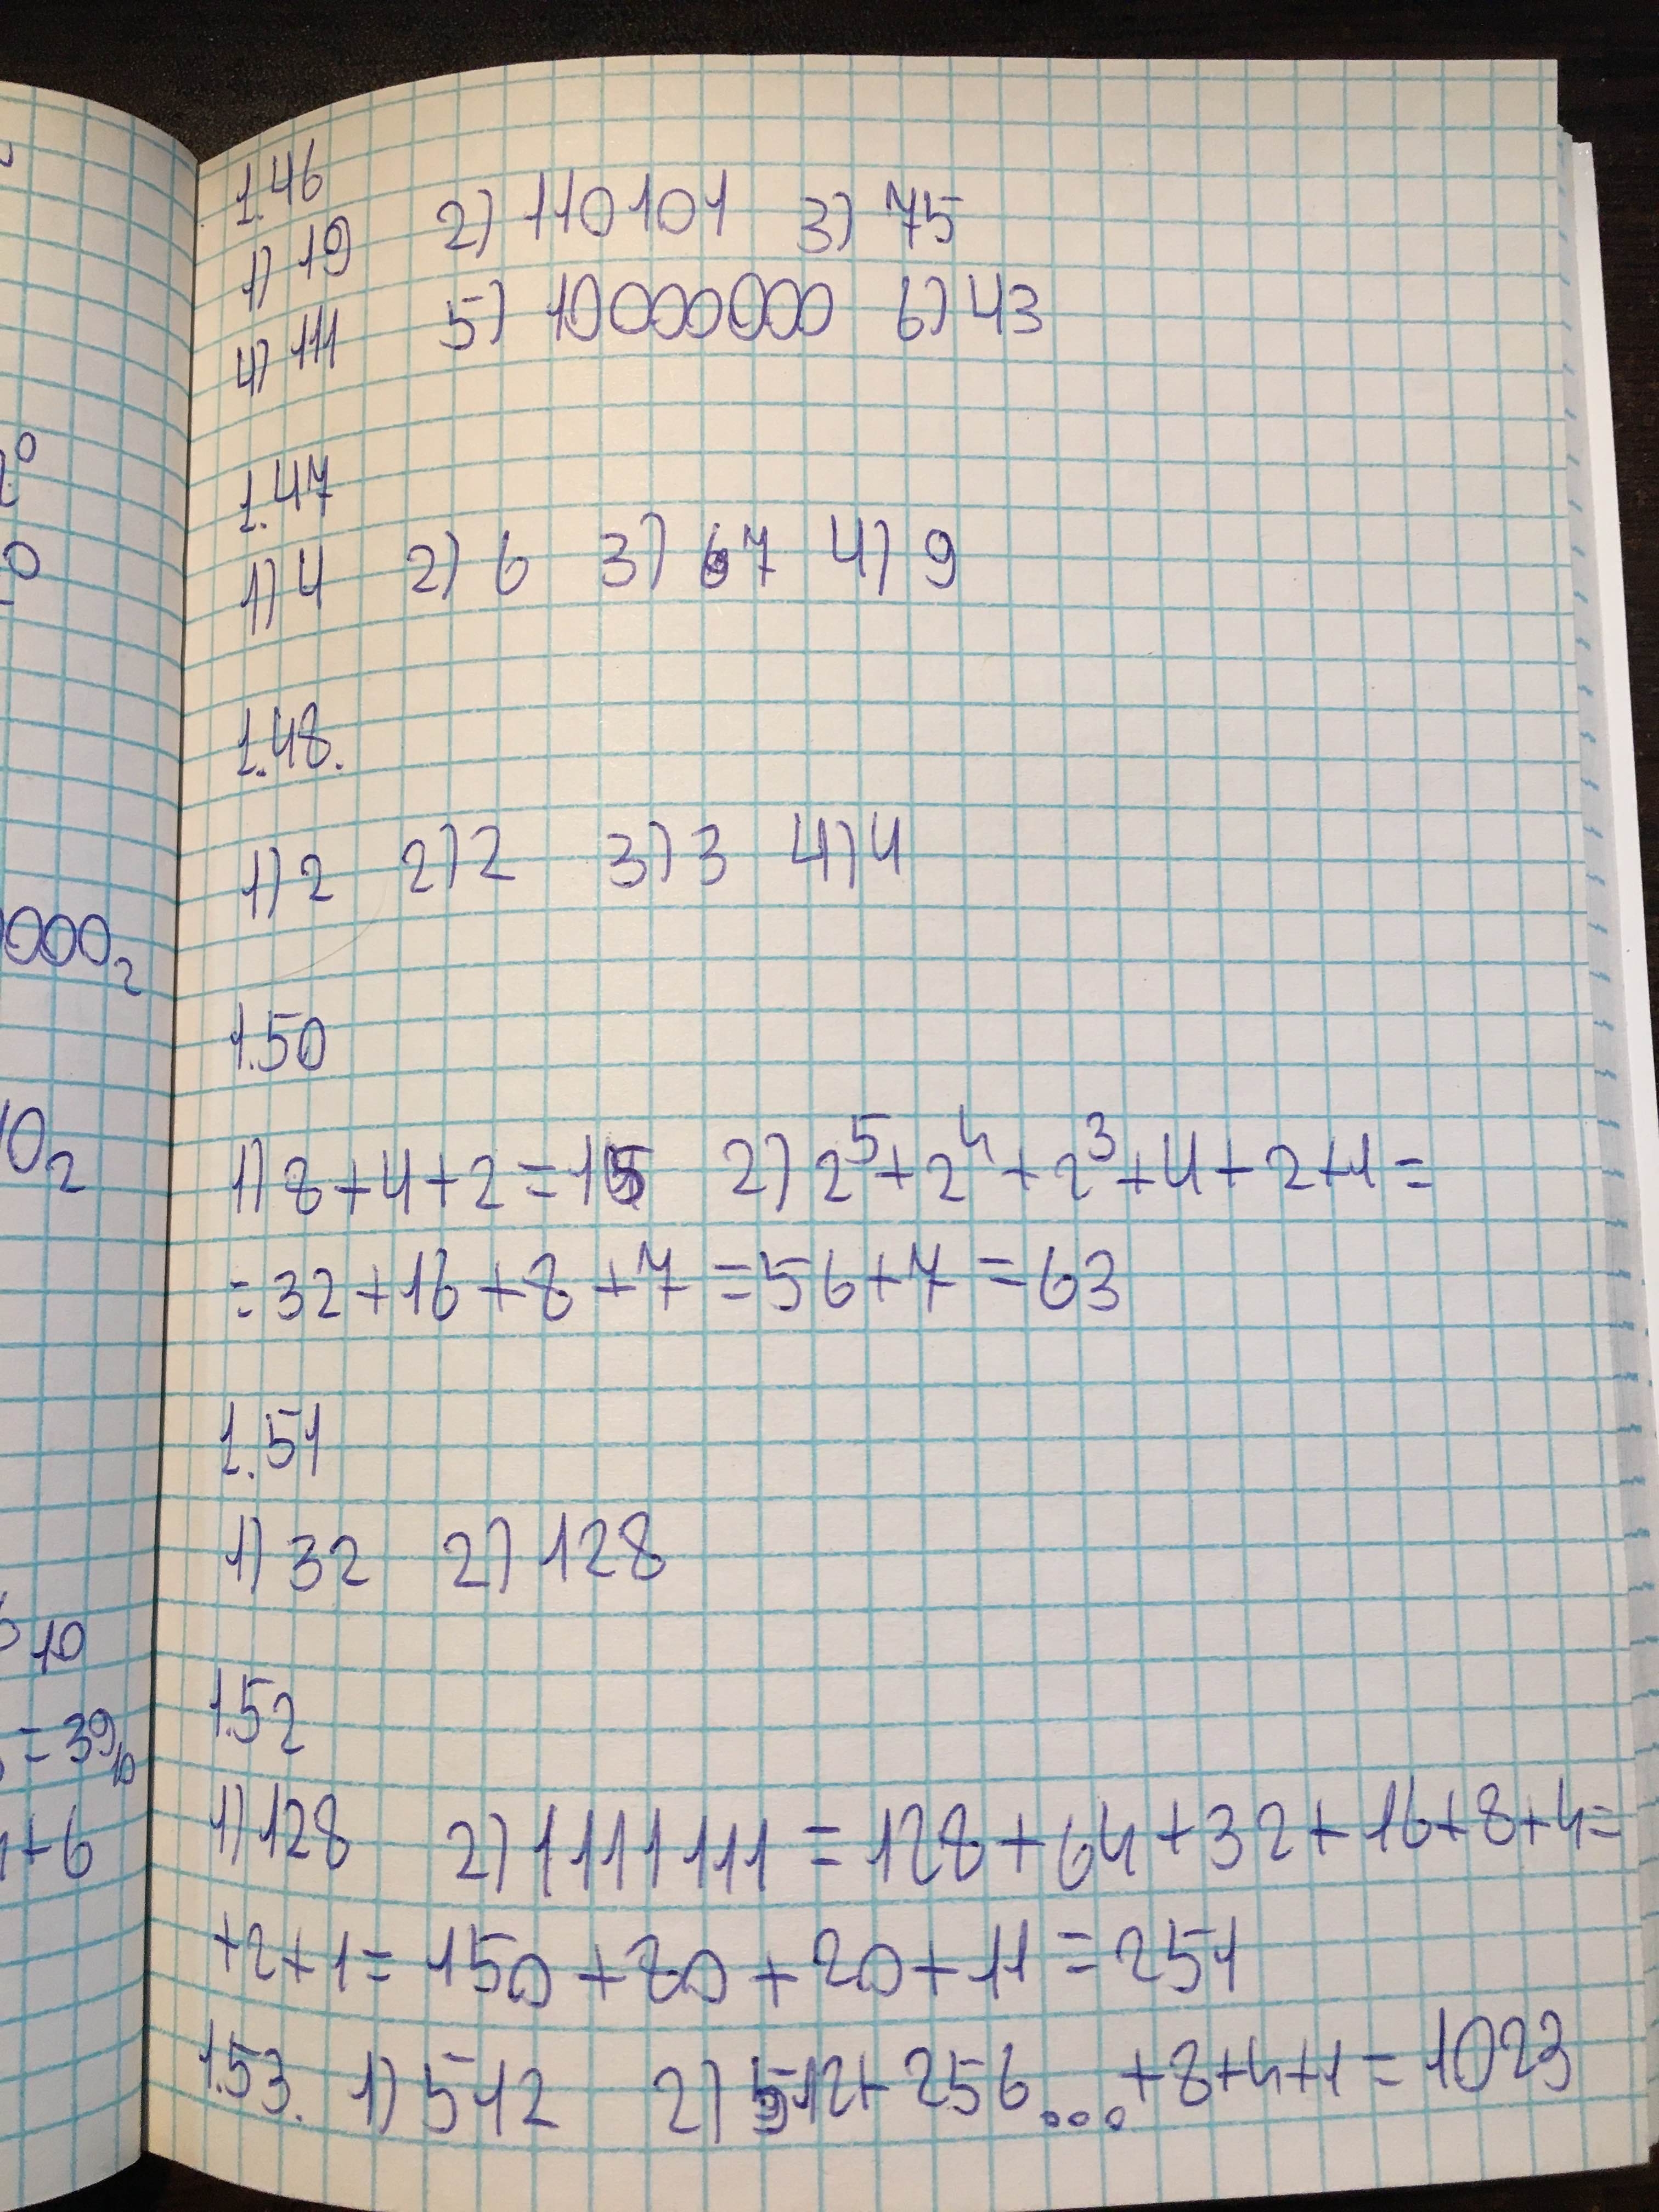 1.46
1) 19 2) 110101 3) 75
4) 111 5) 10000000 6) 43
1.47
1) 4 2) 6 3) 67 4) 9
1.48.
1) 2 2) 2 3) 3 4) 4
1.50
1) 8+4+2=15 2) 2⁵+2⁴+2³+4+2+1=
=32+16+8+7=56+7=63
1.51
1) 32 2) 128
1.52
1) 128 2) 11111111=128+64+32+16+8+4=
+2+1=150+80+20+11=251
1.53. 1) 512 2) 512+256...+8+4+1=1023
0
000₂
10₂
10
=39₁₀
+6